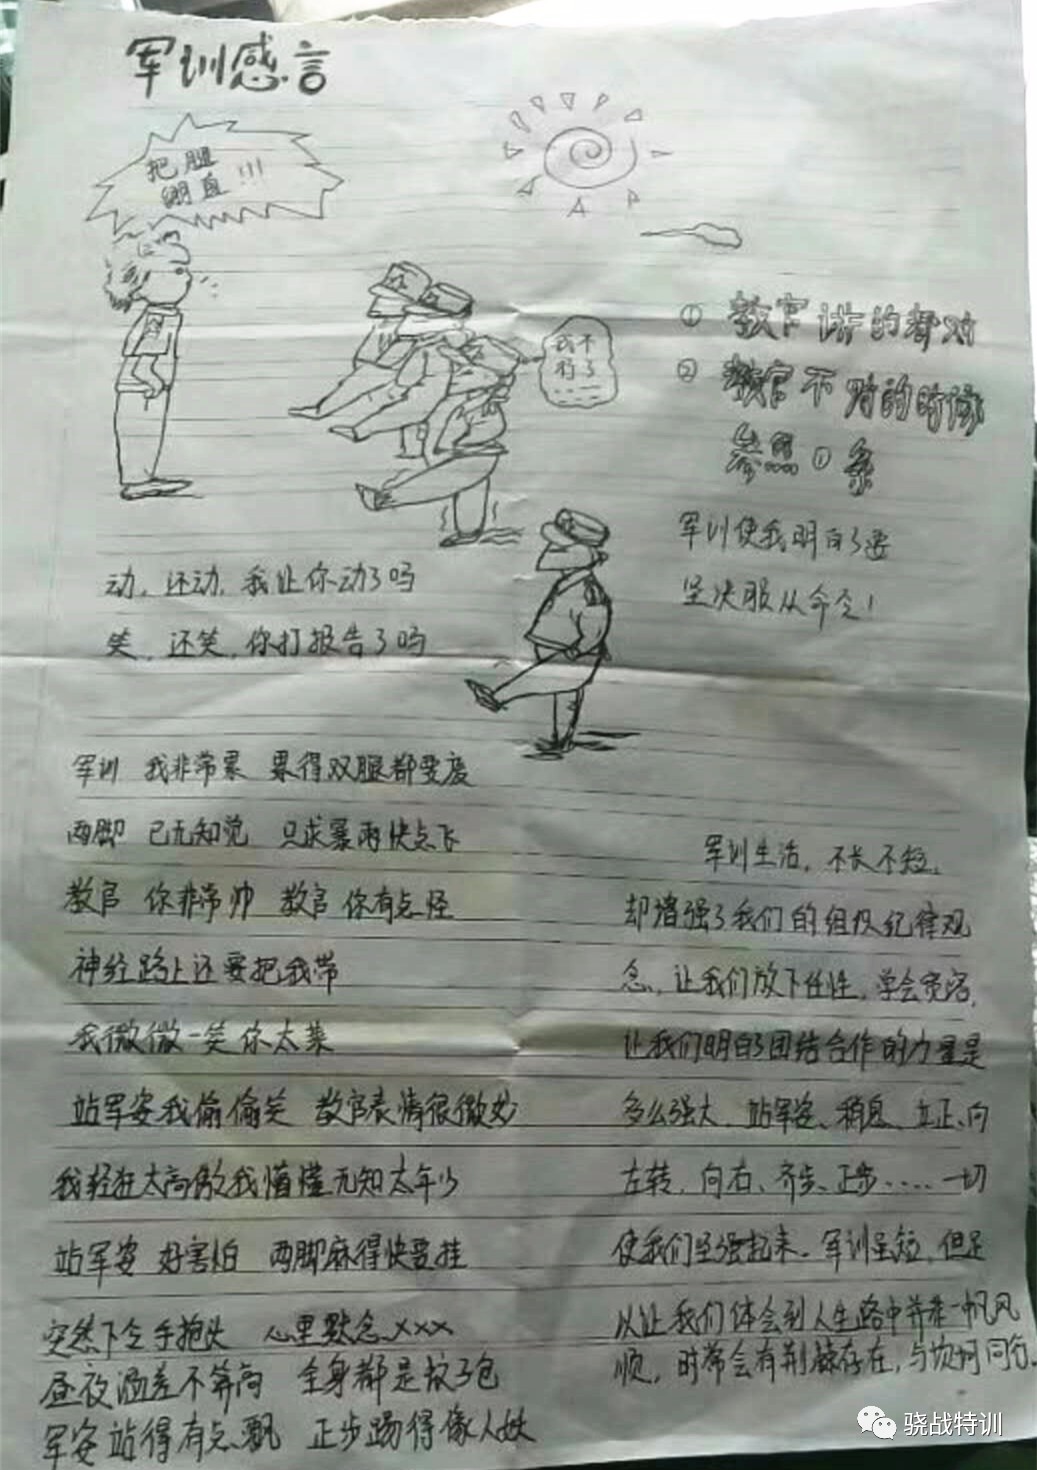 军训感言
把腿
绷直!!!
我不
行了
① 教官讲的都对
② 教官不对的时候
参照①条
军训使我明白了要
坚决服从命令！
动，还动，我让你动了吗
笑，还笑，你打报告了吗
军训 我非常累 累得双腿都要废
两脚 已无知觉 只求暴雨快点飞
教官 你非常帅 教官 你有点怪
神经路上还要把我带
我微微一笑你太菜
站军姿我偷偷笑 教官表情很微妙
我轻狂太高傲我懵懂无知太年少
站军姿 好害怕 两脚麻得快要挂
突然下令手抱头 心里默念×××
昼夜温差不算高 全身都是蚊子包
军姿站得有点飘 正步踢得像人妖
军训生活，不长不短，
却增强了我们的组织纪律观
念，让我们放下任性，学会宽容，
让我们明白了团结合作的力量是
多么强大，站军姿、稍息、立正、向
左转，向右、齐步、正步……一切
使我们坚强起来。军训虽短，但足
以让我们体会到人生路中并非一帆风
顺，时常会有荆棘存在，与坎坷同行.
骁战特训